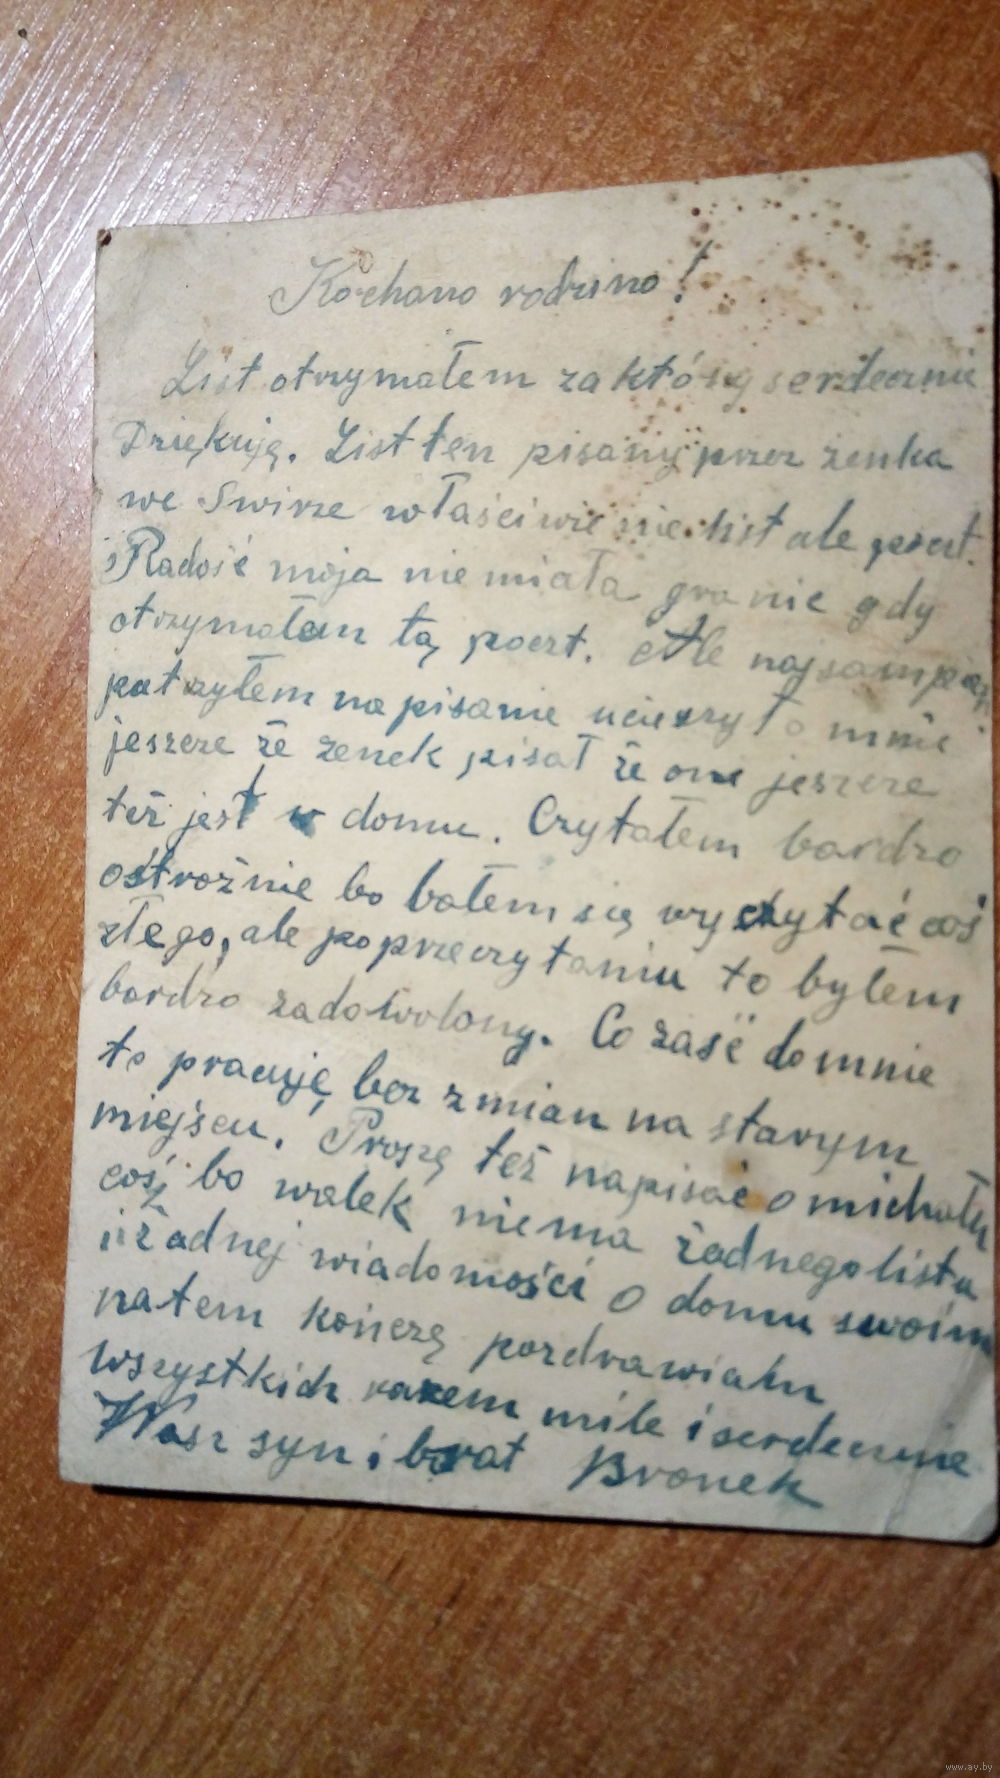 Kochano rodzino!
List otrzymałem za który serdecznie
Dziękuję. List ten pisany przez żenka
we Swirze właściwie nie list ale poczt.
Radość moja nie miała granic gdy
otrzymałem tą poczt. Ale najsamp
patrzyłem na pisanie ucieszyło mnie
jeszcze że żenek pisał że on jeszcze
też jest w domu. Czytałem bardzo
ostrożnie bo bałem się wyczytać coś
złego, ale po przeczytaniu to byłem
bardzo zadowolony. Co zaś do mnie
to pracuję bez zmian na starym
miejscu. Proszę też napisać o michału
coś bo walek niema żadnego listu
i żadnej wiadomości o domu swoim
natem kończę pozdrawiam
wszystkich razem mile i serdecznie
Wasz syn i brat Bronek
www.ay.by